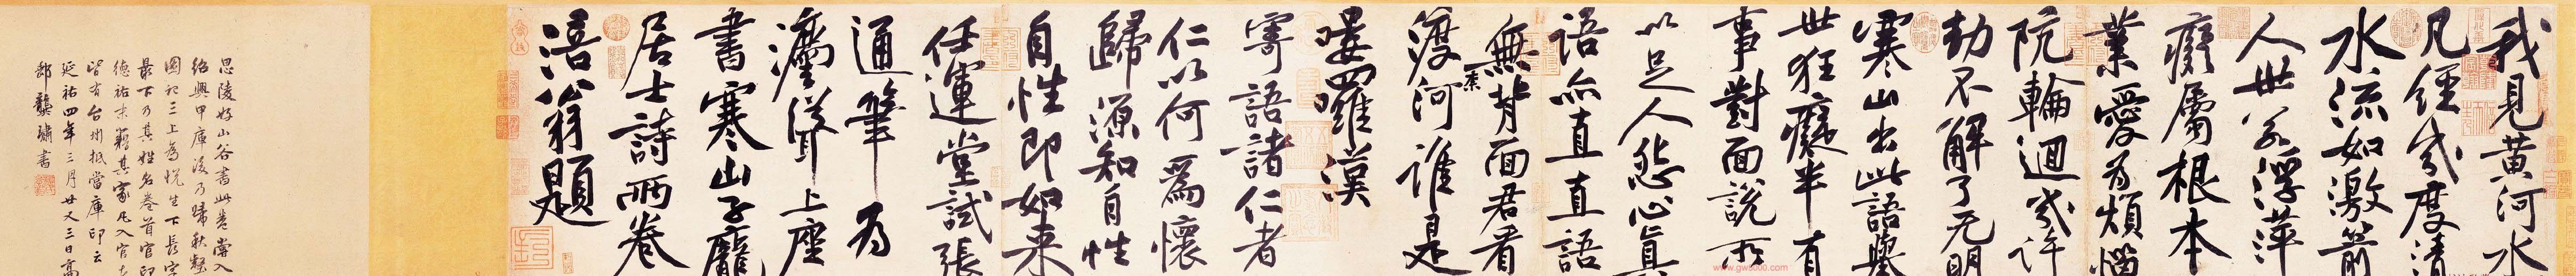 我見黃河水
凡經幾度清
水流如激箭
人世若浮萍
癡屬根本
業愛為煩惱
阬輪迴幾許
劫不解了无明
寒山出此語舉
世狂癡半有
事對面說所
以足人怨心真
語亦直直語
無背面君看
柰
渡河誰是
嘍囉漢
寄語諸仁者
仁以何為懷
歸源知自性
自性即如来
任運堂試張
通筆為
法聳上座
書寒山子龐
居士詩兩卷
涪翁題
思陵好山谷書此卷嘗入
紹興甲庫後乃歸秋壑
圖記三上為悅生下長字
最下乃其姓名卷首官印
德祐末籍其家凡入官者
皆有台州抵當庫印云
延祐四年三月廿又三日高
郵龔璛書
www.gw5000.com